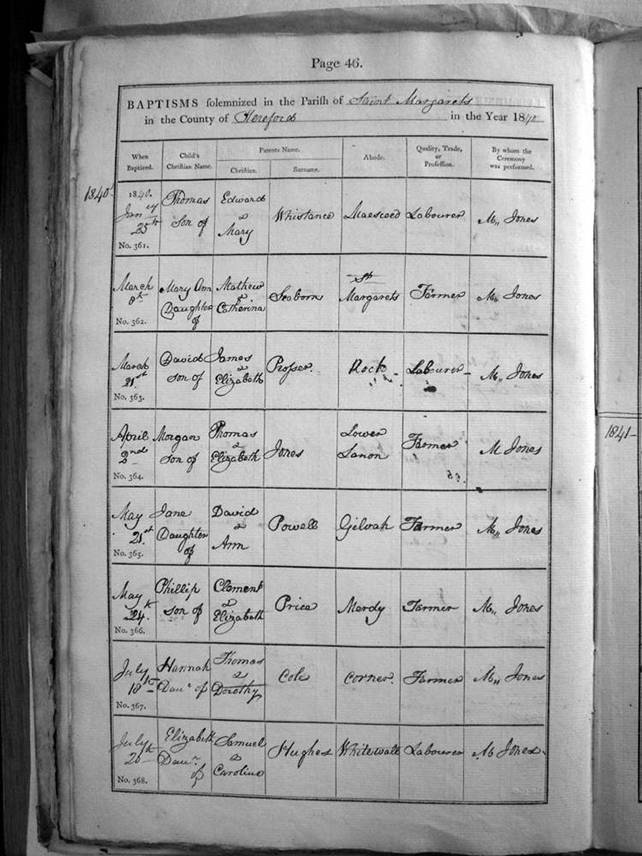 Page 46.
BAPTISMS solemnized in the Parish of Saint Margarets
in the County of Hereford in the Year 1840
When Baptized. Child's Christian Name. Parents Name. Christian. Surname. Abode. Quality, Trade, or Profession. By whom the Ceremony was performed.
1840
1840.
Jan'y 25th Thomas son of Edward & Mary Whistance Maescoed Labourer M,, Jones
No. 361.
March 8th Mary Ann Daughter of Mathew & Catherina Seaborn St Margarets Farmer M,, Jones
No. 362.
March 21st David son of James & Elizabeth Prosser Rock Labourer M,, Jones
No. 363.
April 2nd Morgan son of Thomas & Elizabeth Jones Lower Lanon Farmer M Jones
No. 364.
May 21st Jane Daughter of David & Ann Powell Gilvah Farmer M,, Jones
No. 365.
May 24th Phillip son of Clement & Elizabeth Price Mardy Farmer M,, Jones
No. 366.
July 18th Hannah Daur of Thomas & Dorothy Cole Corner. Farmer M,, Jones
No. 367.
July 20th Elizabeth Daur. of Samuel & Caroline Hughes Whitewall Labourer M Jones.
No. 368.
1841